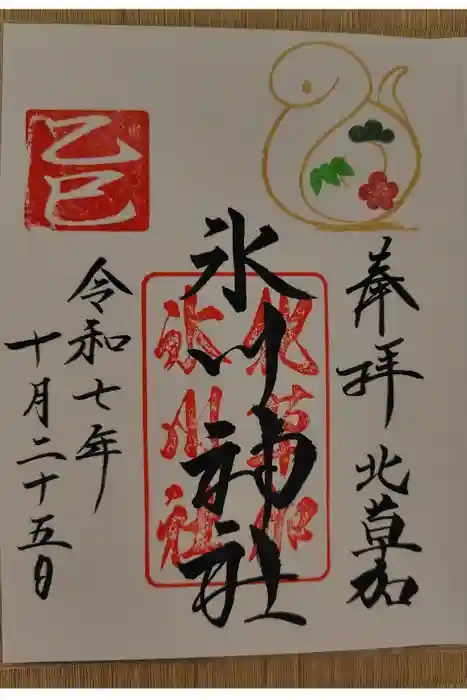 奉拝 北草加
北草加
氷川社
氷川神社
令和七年
十月二十五日
乙巳